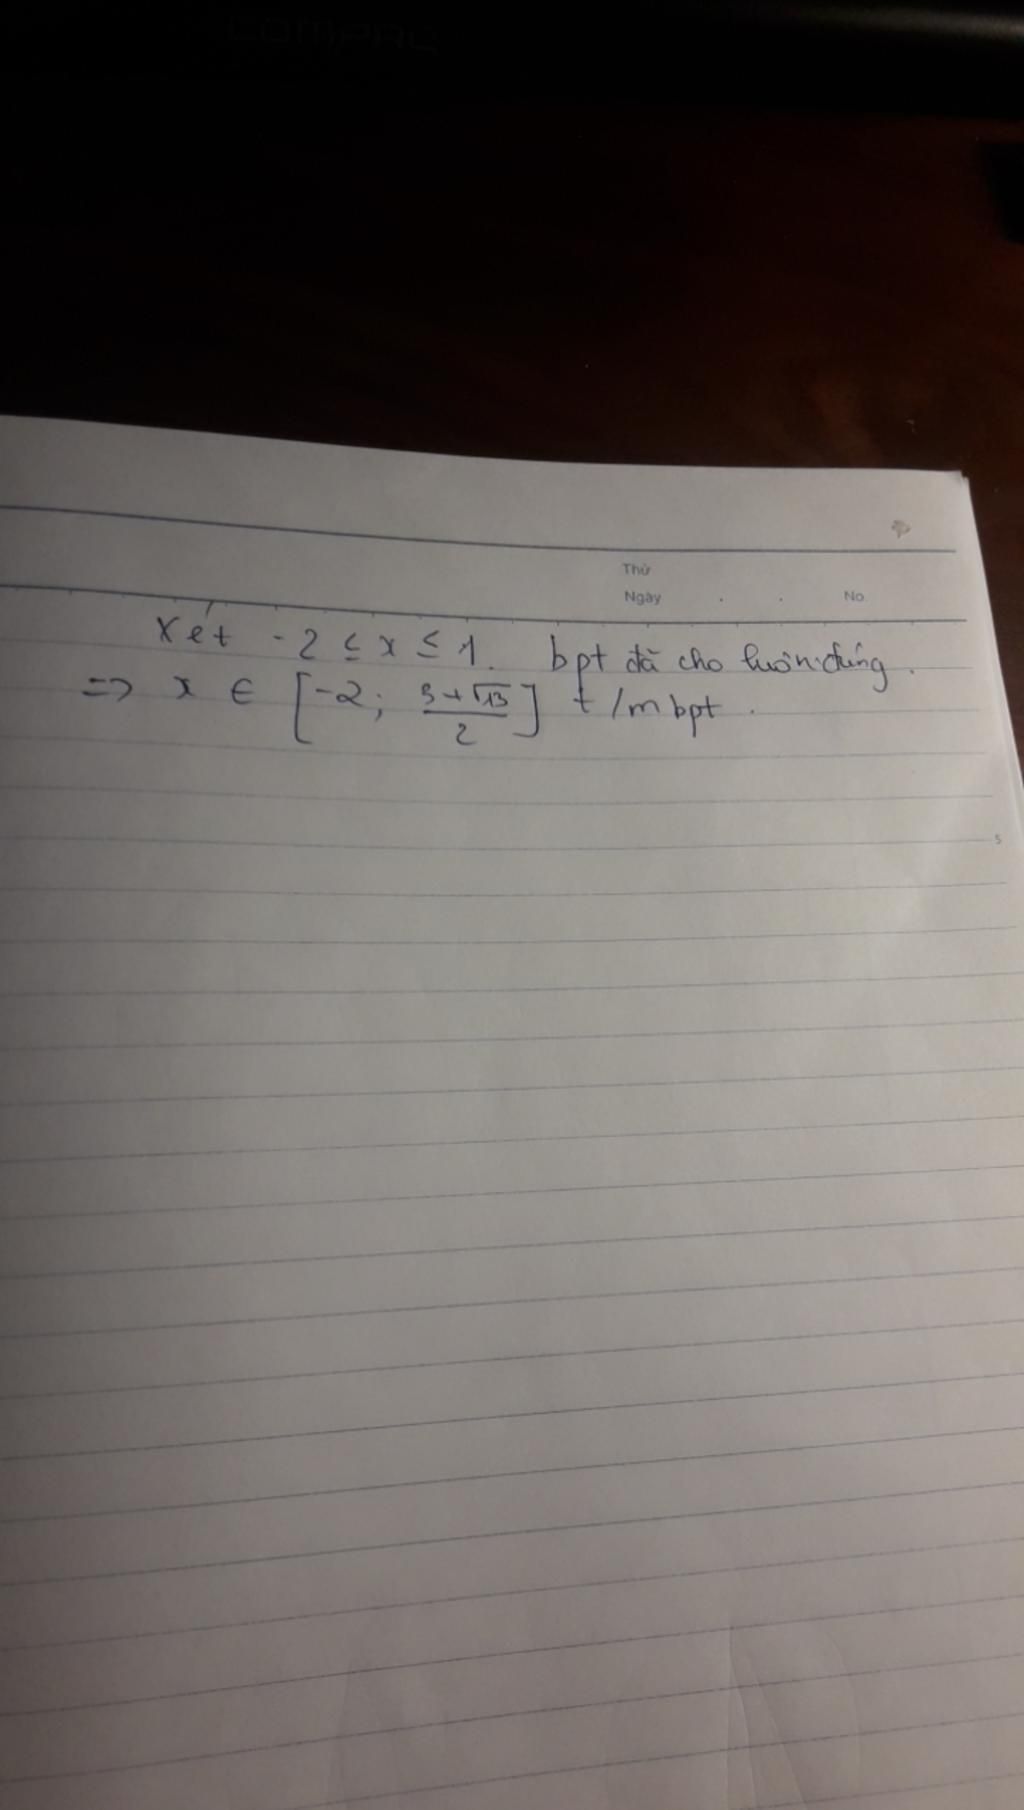 COMPAQ
Thứ
Ngày . . No.
Xét -2 ≤ x ≤ 1. bpt đã cho luôn đúng.
=> x ∈ [-2; \frac{3+√13}{2}] t/m bpt.
5